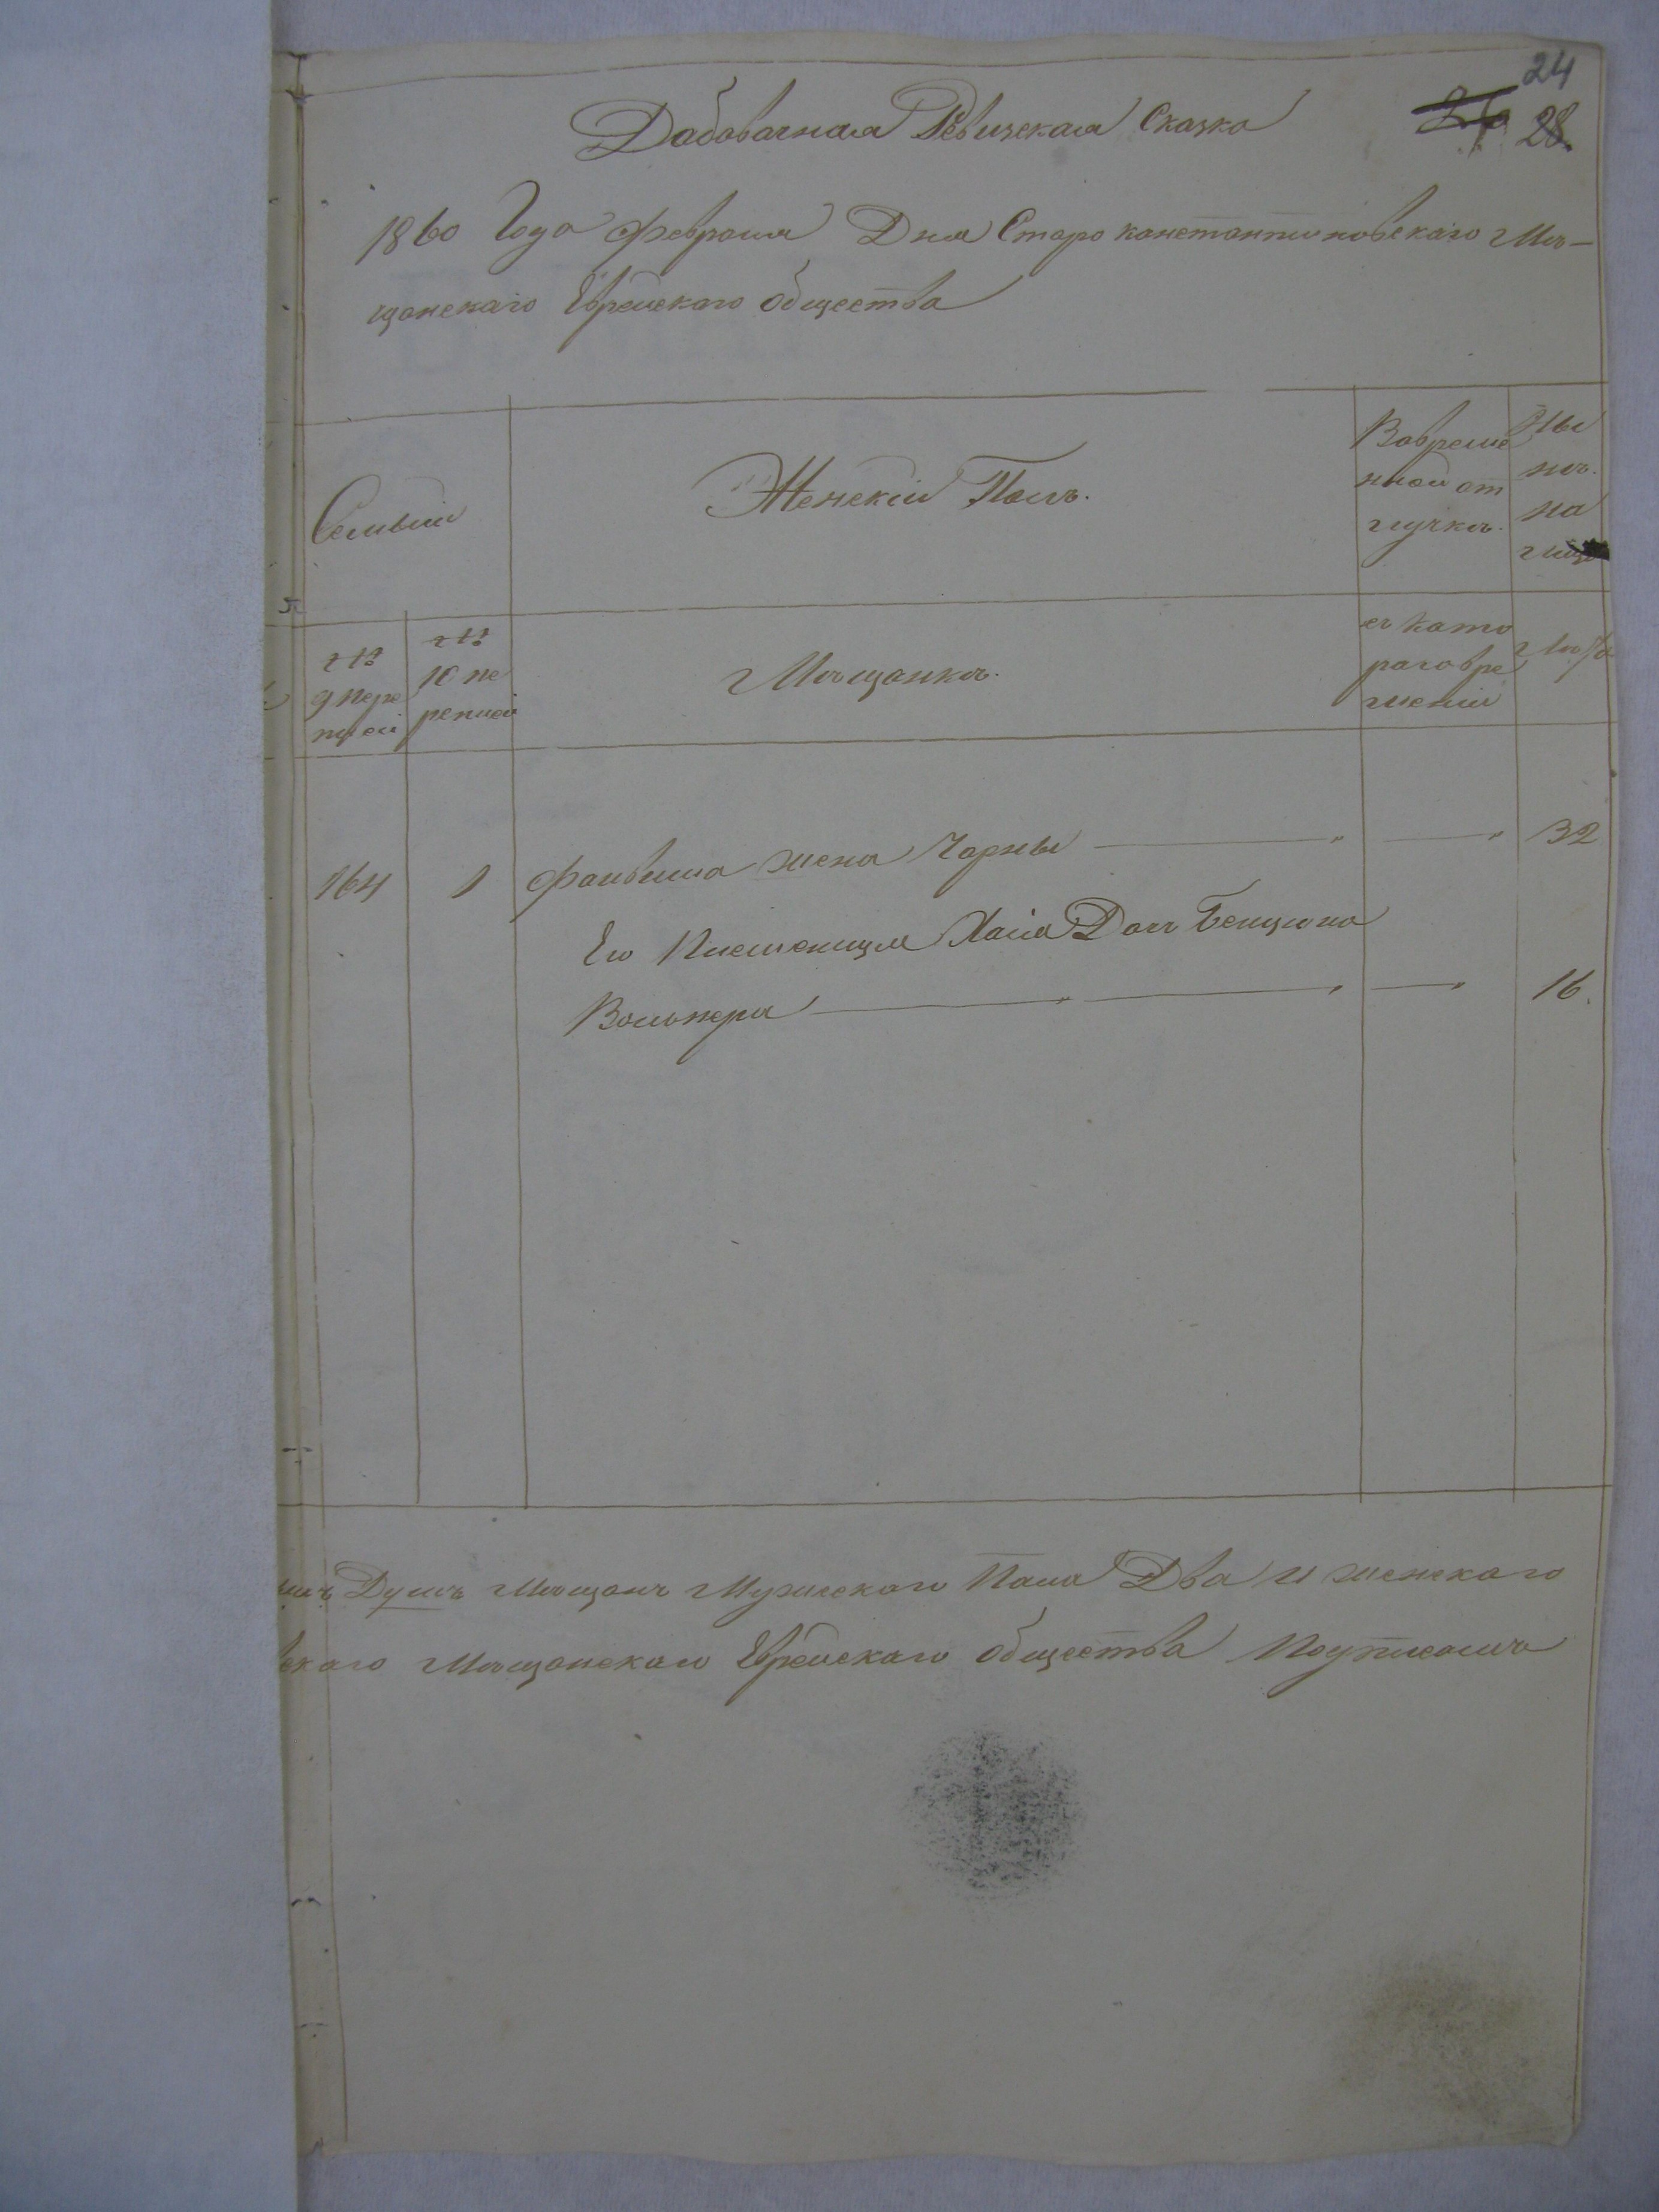 24
28.
Дабавачная Ревизская Сказка
1860 Года февраля Дня Старо канстантиновскаго Мѣ-
щанскаго Еврейскаго общества
Семьии
Женский Полъ.
Вовреме
нной от
лучкѣ.
Ны
нѣ.
на
лицо
№
9 пере
писи
№
10 пе
реписи
Мѣщанкѣ.
съ като
раговре
мении
Лѣта
164 1 Файвиша жена Чарны 32
Его Племеница Хаия Доч Бенциона
Вольпера 16.
Душъ Мѣщанъ Мужескаго Пола Два и женскаго
вскаго Мѣщанскаго Еврейскаго общества Подписомъ